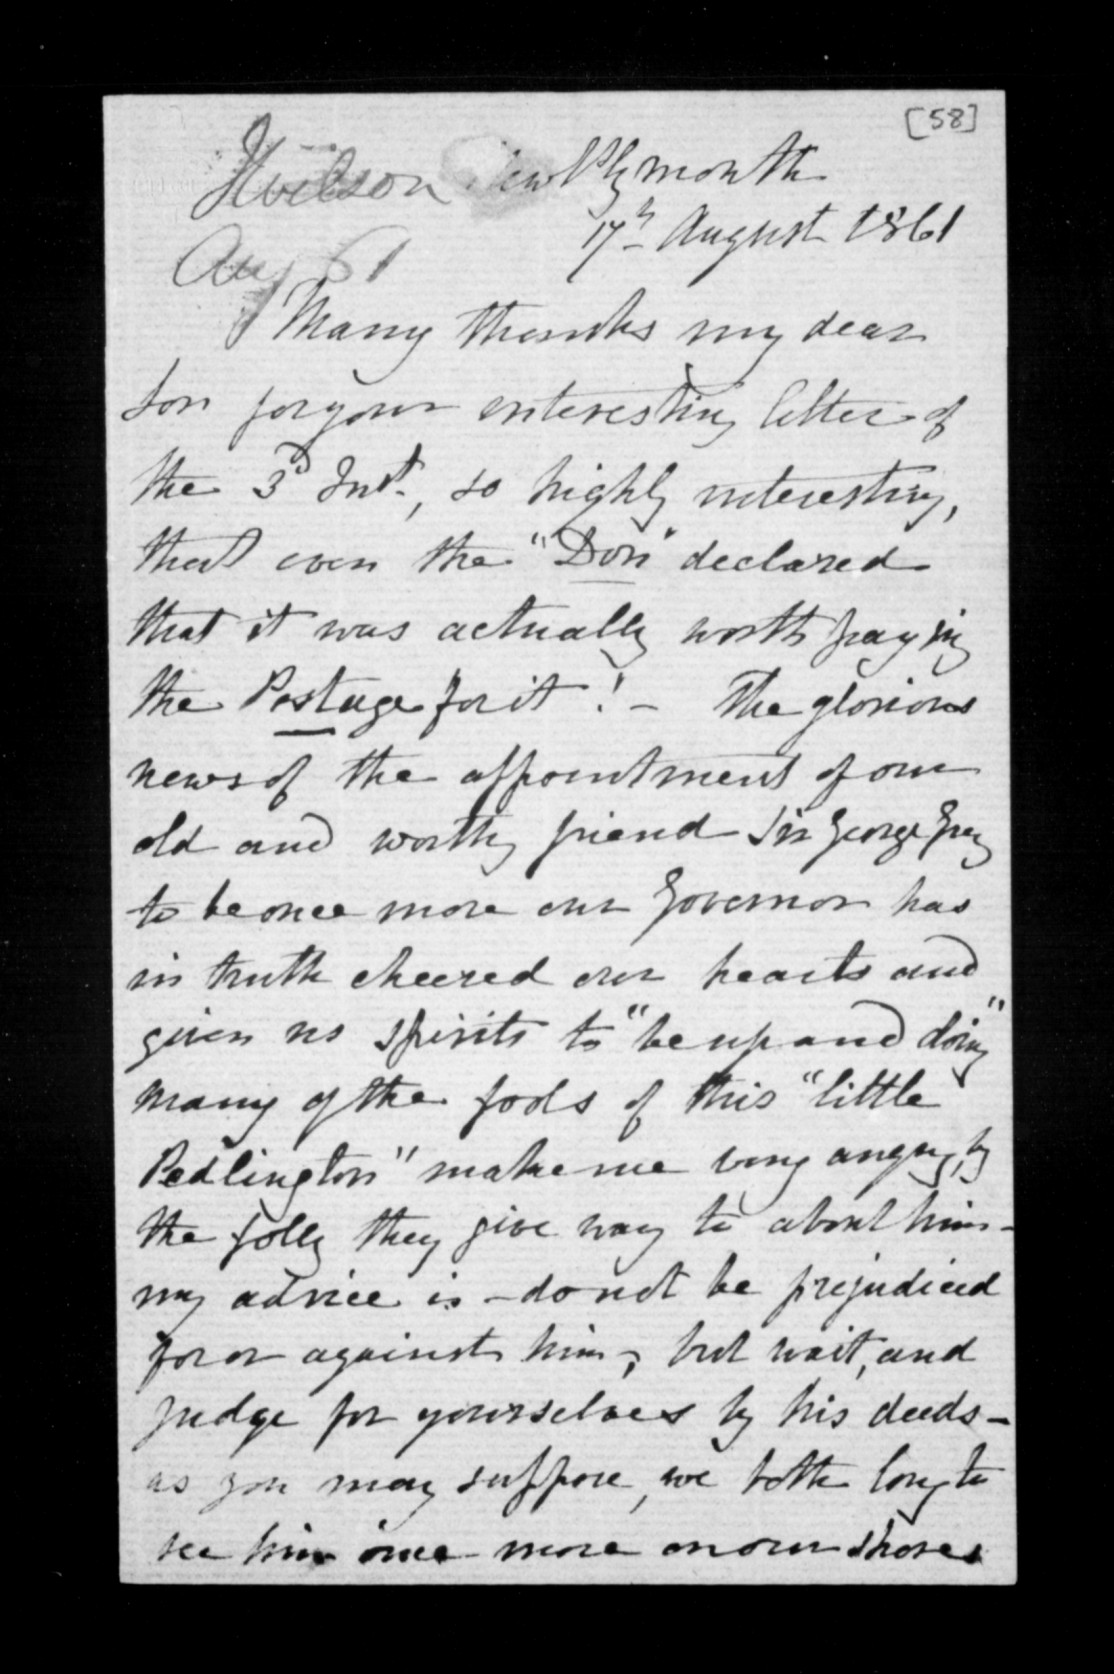 [58]
JWilson New Plymouth
17th August 1861
Aug 61
Many thanks my dear
Son for your interesting letter of
the 3d Inst., so highly interesting,
that even the "Don" declared
that it was actually worth paying
the Postage for it! – The glorious
news of the appointment of our
old and worthy friend Sir George Grey
to be once more our Governor has
in truth cheered our hearts and
given us spirits to "be up and doing"
many of the fools of this "little
Pedlington" make me very angry, by
the folly they give way to about him –
my advice is – do not be prejudiced
for or against him, but wait, and
judge for yourselves by his deeds –
as you may suppose, we both long to
see him once more on our shores